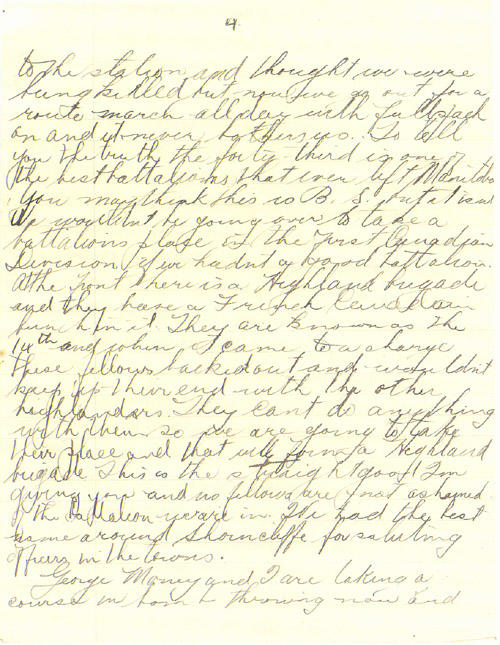 4
to the station and thought we were
being killed but now we go out for a
route march all day with full pack
on and it never bothers us. To tell
you the truth the forty-third is one of
the best battalions that ever left Manitoba
You may think this is B. S. but it isn't
We wouldn't be going over to take a
battalions place in the First Canadian
Division if we hadn't a good battalion.
At the front there is a Highland brigade
and they have a French Canadian
bunch in it. They are known as the
14th and when it came to a charge
these fellows backed out and wouldn't
keep up their end with the other
highlanders. They can't do anything
with them so we are going to take
their place and that will form a Highland
brigade. This is the straight goods I'm
giving you and no fellows are not ashamed
of the battalion we are in. We had the best
name around Shorncliffe for saluting
officers in the towns.
George Maney and I are taking a
course in bomb throwing now and